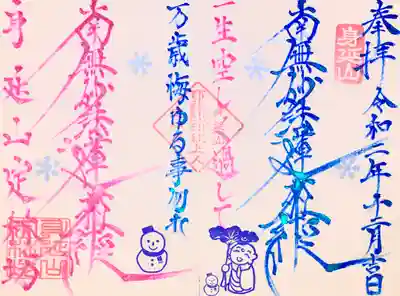 奉拝 令和二年十二月吉日
身延山
南無妙法蓮華経
一生空しく過して
万歳悔ゆる事勿れ
南無妙法蓮華経
身延山 定林坊